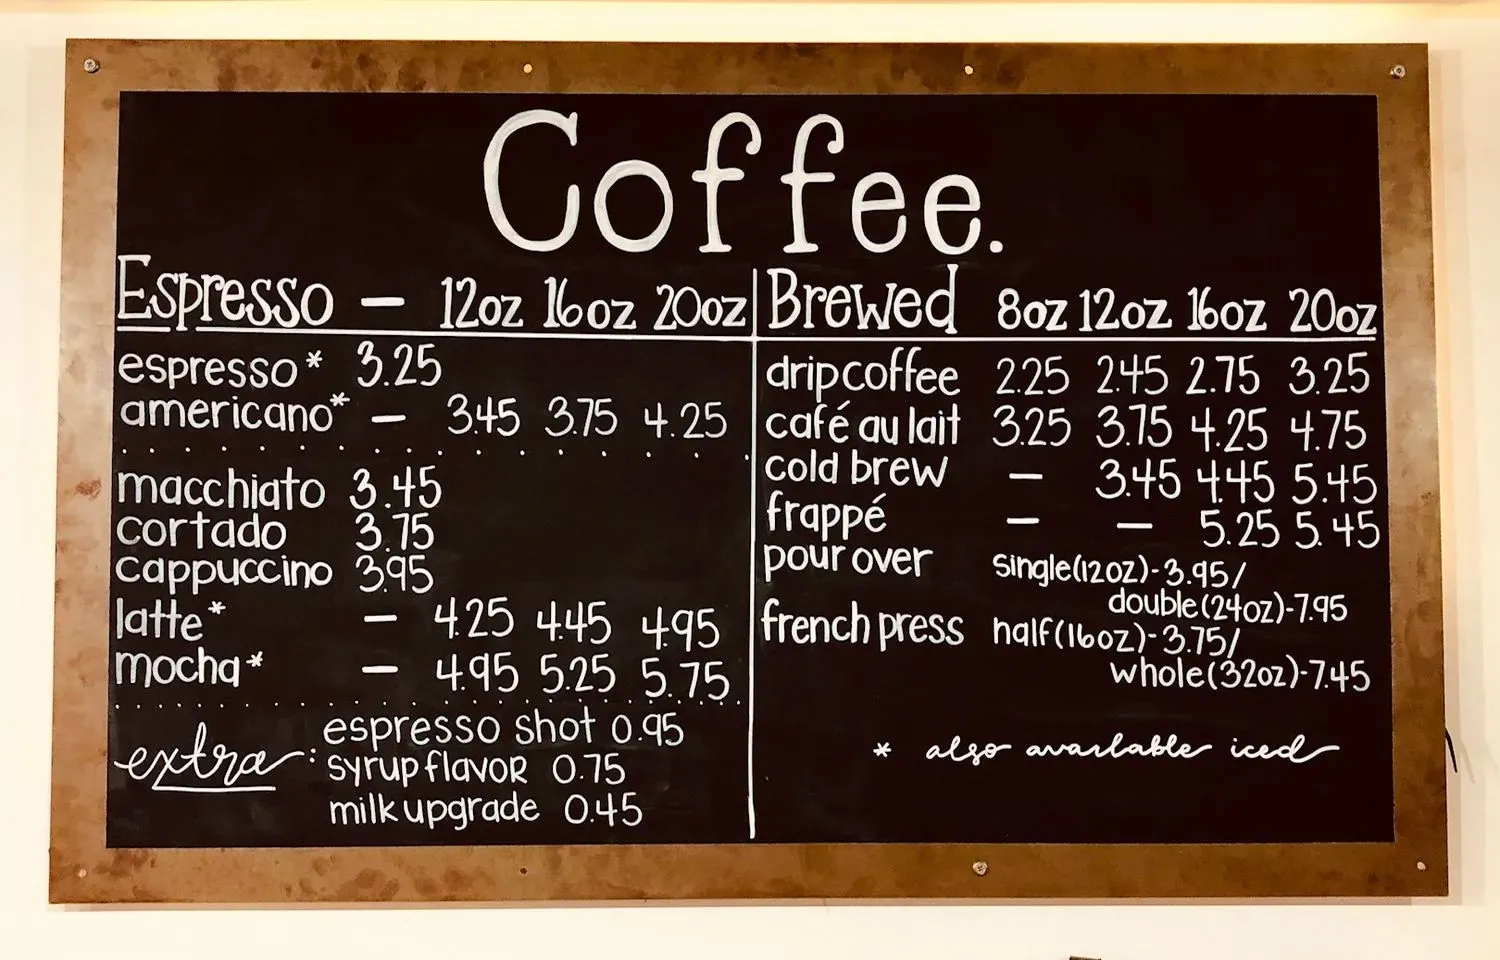 Coffee.
Espresso — 12oz 16oz 20oz
espresso* 3.25
americano* — 3.45 3.75 4.25
macchiato 3.45
cortado 3.75
cappuccino 3.95
latte* — 4.25 4.45 4.95
mocha* — 4.95 5.25 5.75
extra: espresso shot 0.95
syrup flavor 0.75
milk upgrade 0.45
Brewed 8oz 12oz 16oz 20oz
drip coffee 2.25 2.45 2.75 3.25
café au lait 3.25 3.75 4.25 4.75
cold brew — 3.45 4.45 5.45
frappé — — 5.25 5.45
pour over single(12oz)-3.95/
double(24oz)-7.95
french press half(16oz)-3.75/
whole(32oz)-7.45
* also available iced